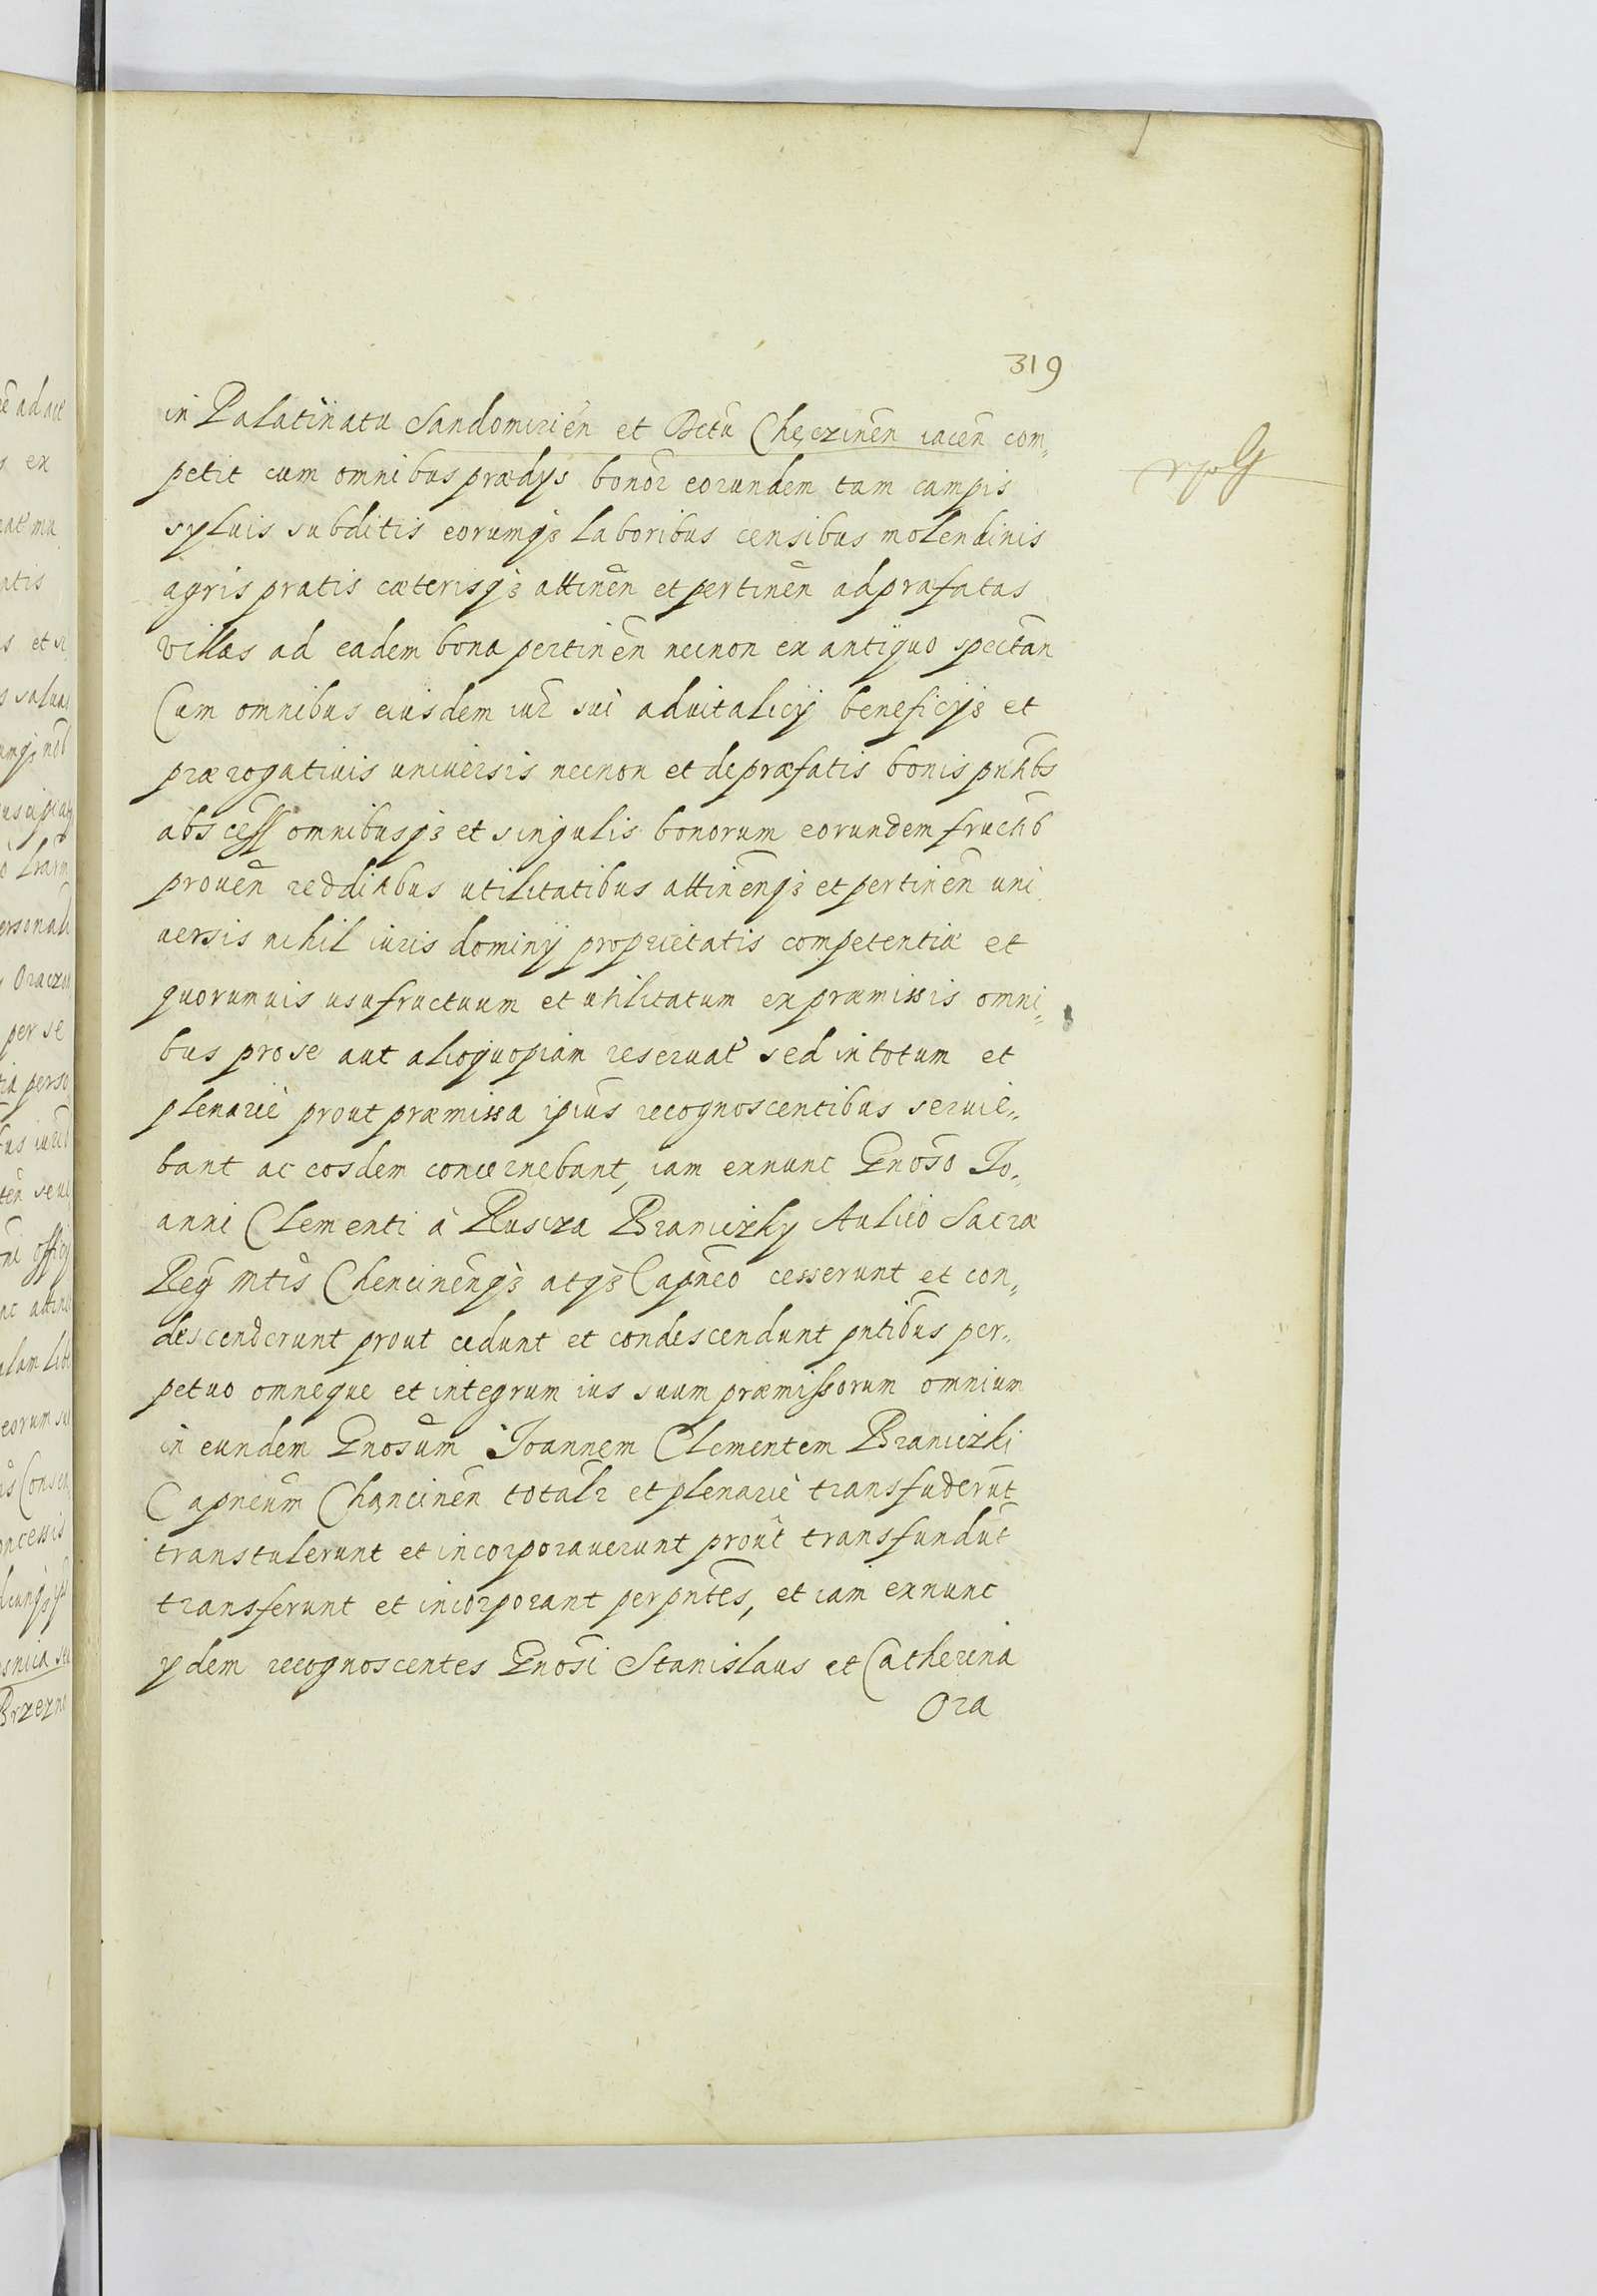 319
in Palatinatu Sandomirien̄ et Dctu Chęczinen̄ iacen̄ com„
petit cum omnibus prædys bonor eorundem tam campis
syluis subditis eorumqȝ laboribus censibus molendinis
agris pratis cæterisqȝ attinen̄ et pertinen̄ ad præfatas
villas ad eadem bona pertinen̄ necnon ex antiquo spectan̄
Cum omnibus eiusdem iur sui aduitalicij beneficijs et
prærogatiuis uniuersis necnon et de præfatis bonis pntibs
abscess omnibusqȝ et singulis bonorum eorundem fructib
prouen̄ redditibus utilitatibus attinen̄qȝ et pertinen̄ uni
uersis nihil iuris dominij proprietatis competentiæ et
quorumuis usufructuum et utilitatum ex præmissis omni„
bus pro se aut alio quopiam reseruat sed in totum et
plenariè prout præmissa ipius recognoscentibus seruie„
bant ac eosdem concernebant, iam exnunc Gnoso Jo„
anni Clementi à Ruscza Braniczky Aulico Sacræ
Reg Mtis Chencinen̄qȝ atqȝ Capneo cesserunt et con„
descenderunt prout cedunt et condescendunt pntibus per„
petuo omneque et integrum ius suum præmissorum omnium
in eundem Gnosum Joannem Clementem Braniczki
Capneum Chancinen̄ totalr et plenariè transfuderūt
transtulerunt et incorporauerunt prout transfundūt
transferunt et incorporant per pntes, et iam exnunc
ydem recognoscentes Gnosi Stanislaus et Catherina
Ora